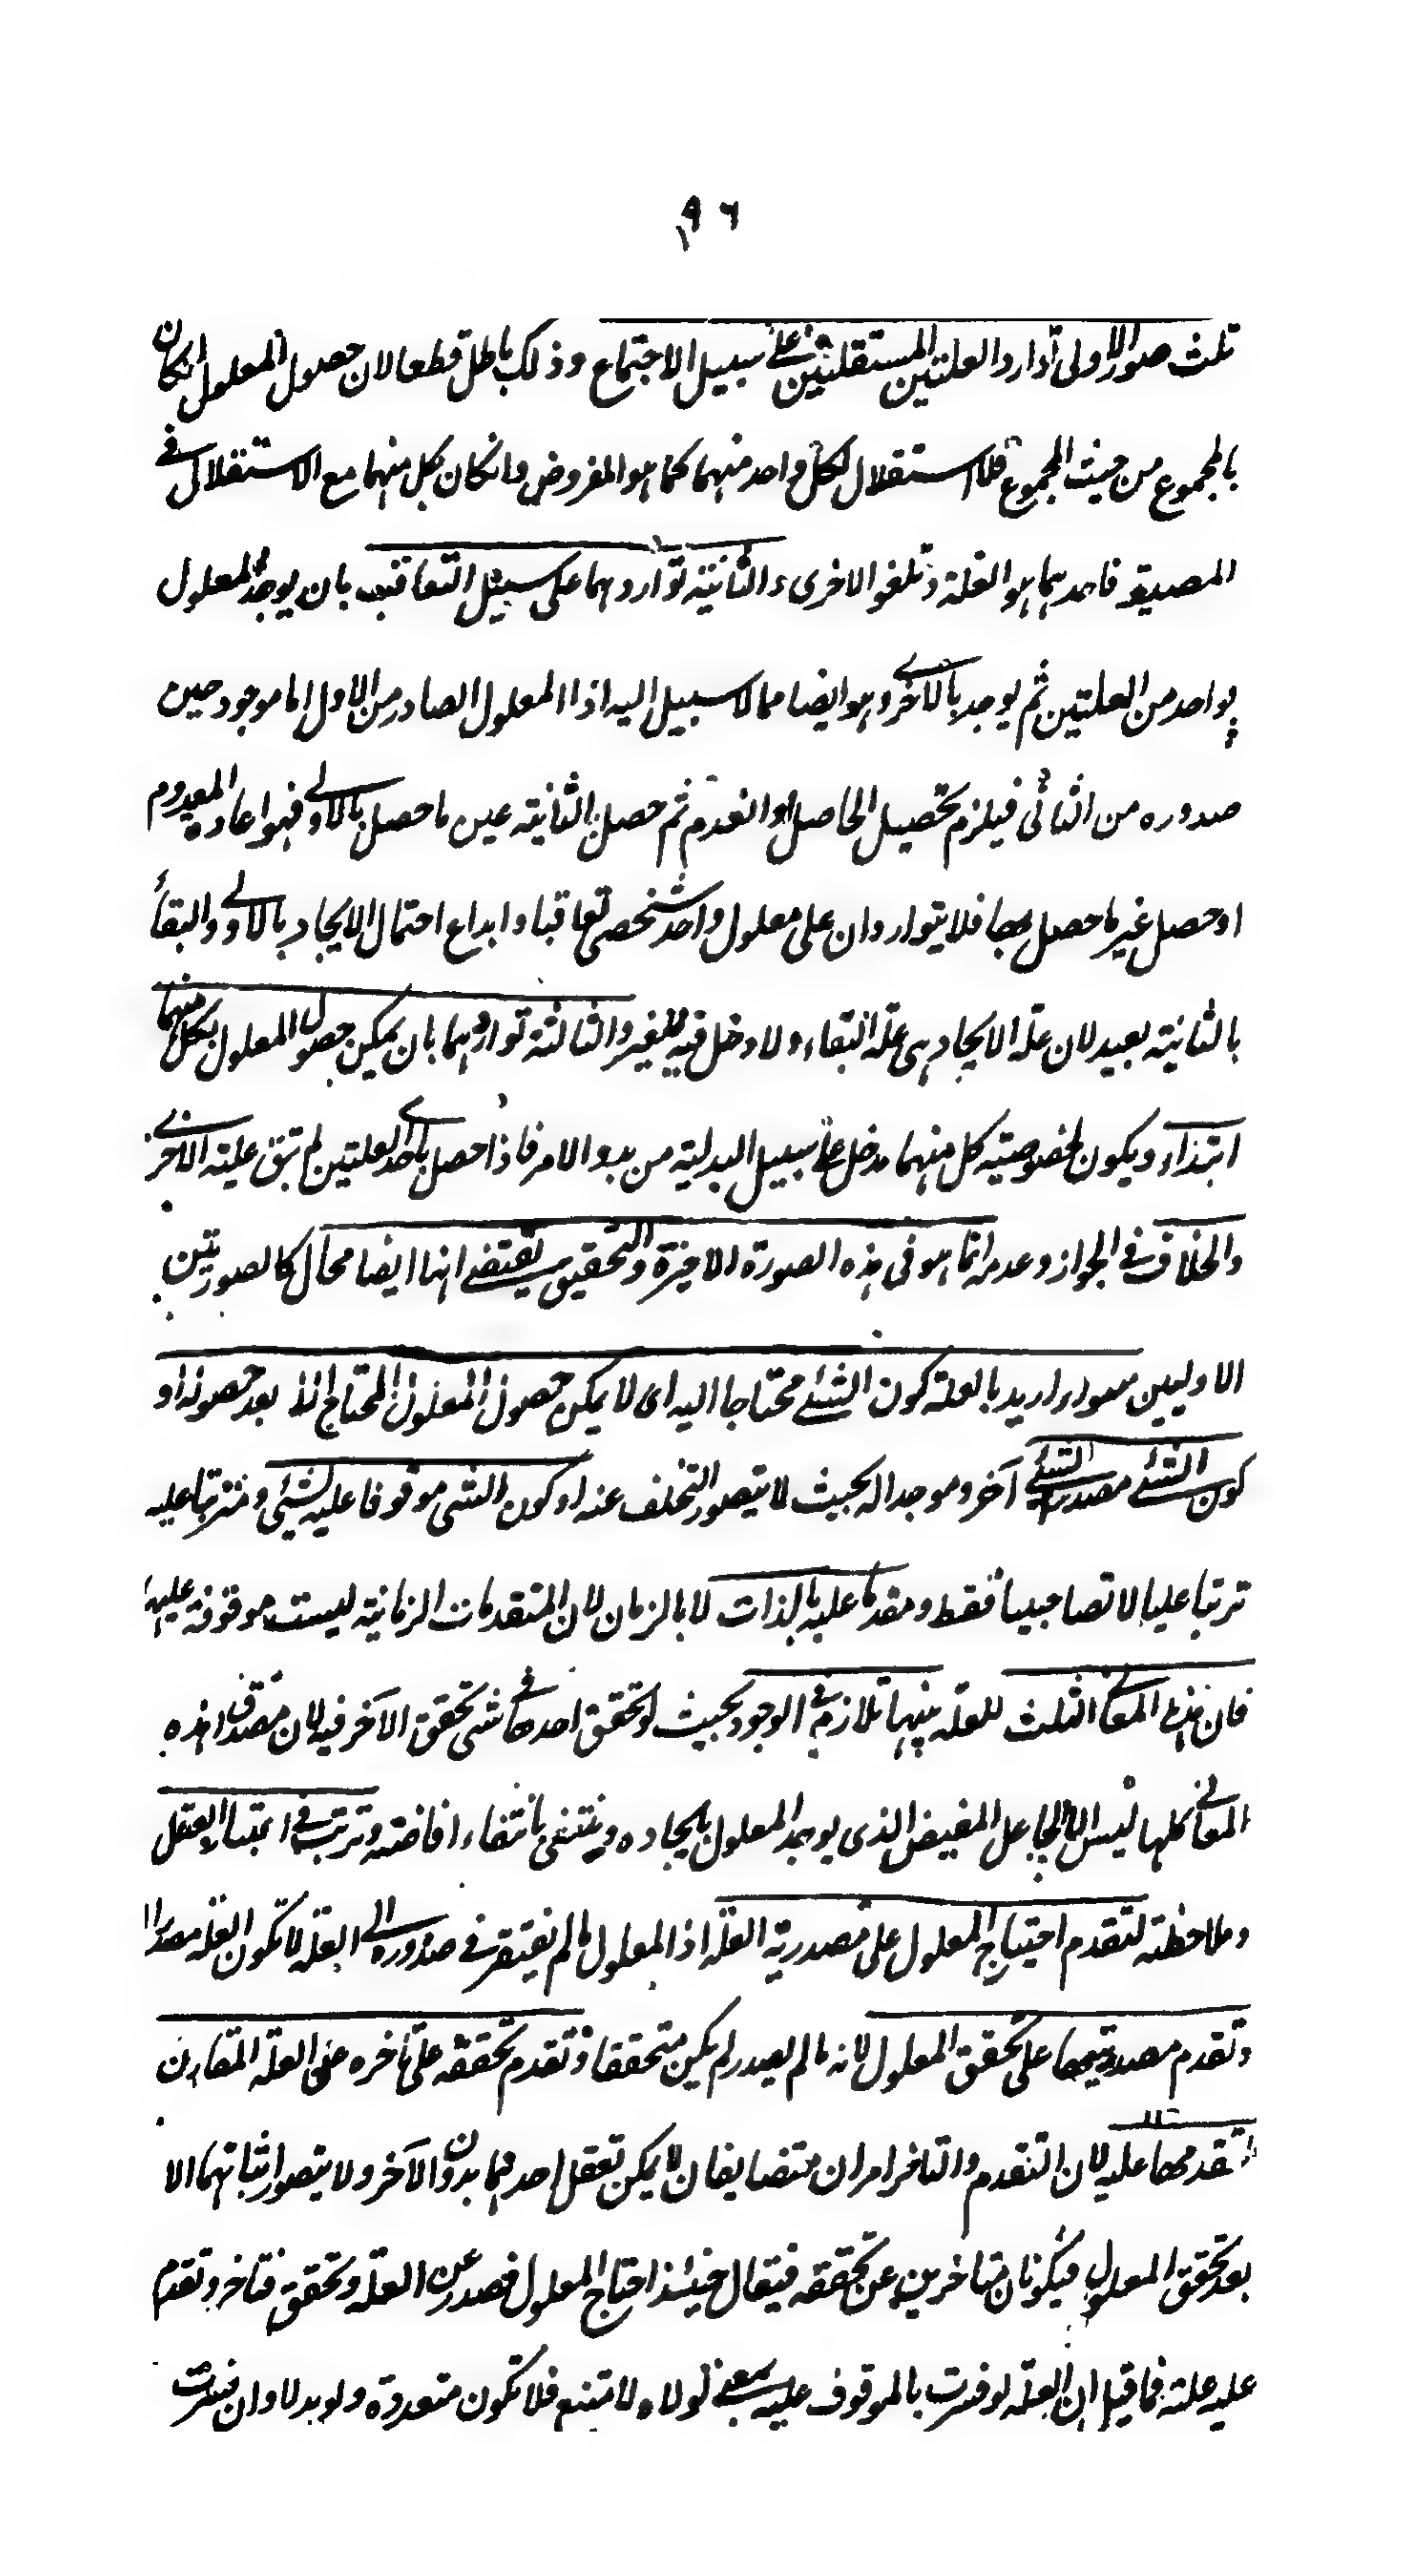 ١٩٦
ثلث صور الاولى توارد العلتين المستقلتين على سبيل الاجتماع وذلك باطل قطعا لان حصول المعلول انكان
بالمجموع من حيث المجموع فلا استقلال لكل واحد منهما كما هو المفروض وانكان بكل منهما مع الاستقلال فى
فاحدهما هو العلة وتلغو الاخرى والثانية تواردهما على سبيل التعاقب بان يوجد المعلول
بواحد من العلتين ثم يوجد بالاخرى وهو ايضا مما لا سبيل اليه اذ المعلول الصادر من الاول اما موجود حين
صدوره من الثانى فيلزم تحصيل الحاصل او انعدم ثم حصل بالثانية عين ما حصل بالاولى فهو اعادة المعدوم
او حصل غير ما حصل بها فلا يتواردان على معلول واحد شخصى تعاقبا وابداع احتمال الايجاد بالاولى والبقاء
بالثانية بعيد لان علة الايجاد هى علة البقاء ولا دخل فيه للغير والثالثة تواردهما بان يمكن حصول المعلول بكل منهما
ابتداء ويكون لخصوصية كل منهما مدخل على سبيل البدلية من بدو الامر فاذا حصل باحد العلتين لم تبق علية الاخرى
والخلاف فى الجواز وعدمه انما هو فى هذه الصورة الاخيرة والتحقيق يقتضى انها ايضا محال كالصورتين
الاوليين سواء اريد بالعلة كون الشئ محتاجا اليه اى لا يمكن حصول المعلول المحتاج الا بعد حصوله او
كون الشئ مصدرا لشئ آخر وموجدا له بحيث لا يتصور التخلف عنه او كون الشى موقوفا عليه لشئى ومترتبا عليه
ترتبا عليا لا تصاحبيا فقط ومقدما عليه بالذات لا بالزمان لان المتقدمات الزمانية ليست موقوفة عليها
فان هذه المعانى الثلث للعلة بينها تلازم فى الوجود بحيث لو تحقق احدها فى شى تحقق الآخر فيه لان مصداق هذه
المعانى كلها ليس الا الجاعل المفيض الذى يوجد المعلول بايجاده وينتفى بانتفاء افاضته وترتب فى اعتبار العقل
وملاحظته لتقدم احتياج المعلول على مصدرية العلة اذ المعلول ما لم يفتقر فى صدوره الى العلة لا تكون العلة مصدرا
وتقدم مصدريتها على تحقق المعلول لانه ما لم يصدر لم يكن متحققا وتقدم تحققه على تاخره عن العلة المقارن
لتقدمها عليه لان التقدم والتاخر امران متضايفان لا يمكن تعقل احدهما بدون الآخر ولا يتصور اثباتهما الا
بعد تحقق المعلول فيكونان متاخرين عن تحققه فيقال حينئذ احتاج المعلول فصدر عن العلة وتحقق فتاخر وتقدم
عليه علته فما قيل ان العلة لو فسرت بالموقوف عليه بمعنى لولاه لامتنع فلا تكون متعددة ولو بدلا وان فسرت